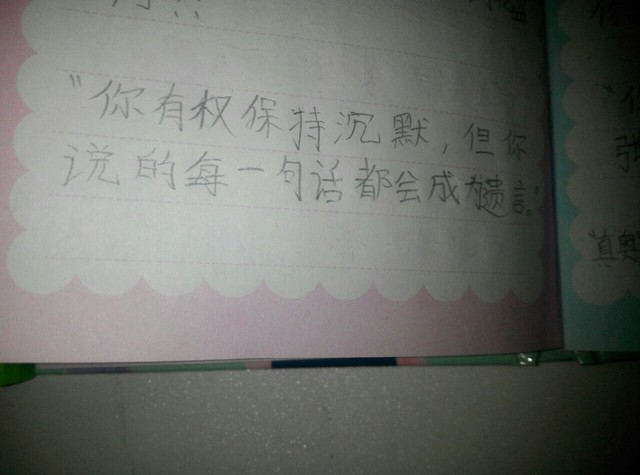 “你有权保持沉默，但你
说的每一句话都会成为遗言。”